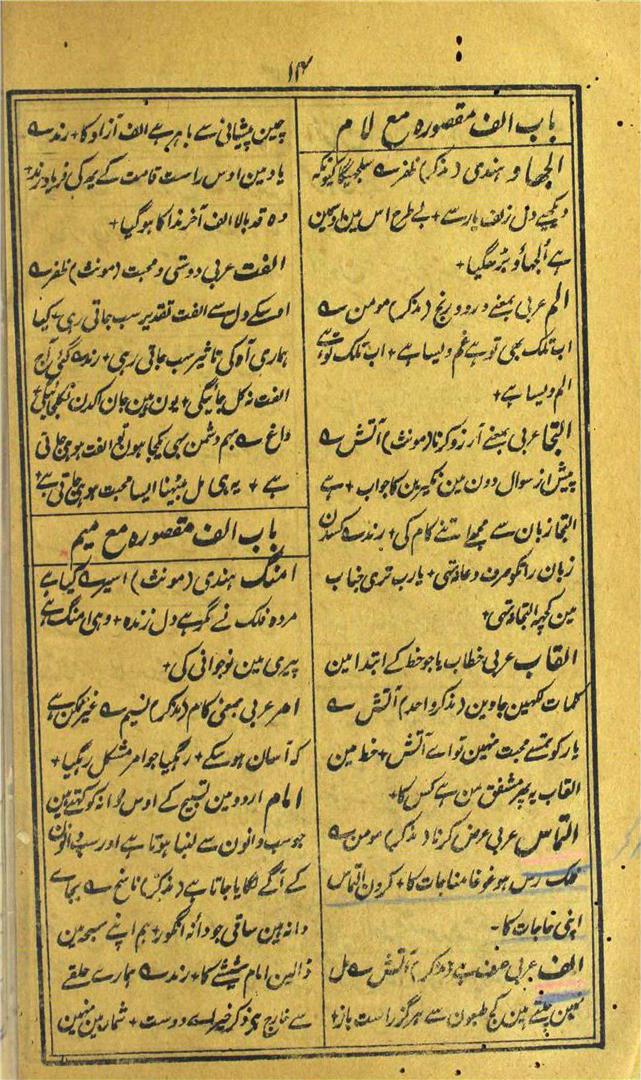 ۱۴
باب الف مقصورہ مع لام
الجھاو ہندی (مذکر) ظفر سے سلجھیگا کیونکہ
دیکھیے دل زلف یار سے + بے طرح اس مین اوسمین
ہے اُلجھاؤ پڑھگیا +
الم عربی بمعنے درد و رنج (مذکر) مومن سے
اب تلک بھی تو ہے غم ویسا ہے + اب تلک تو ہے
الم ویسا ہے +
التجا عربی بمعنے آرزو کرنا (مونث) آتش سے
پیش از سوال دون مین نکیرین کا جواب + ہے
التجا زبان سے مجھے اتنے کام کی + رند سے
زبان را نکو صرف دعا تھی + یارب تری جناب
مین کچھ التجا نہ تھی +
القاب عربی خطاب یا جو خط کے ابتدا مین
کلمات لکھین جاوین (مذکر واحد) آتش سے
یار کو تمسے محبت نہین تو اے آتش + خط مین
القاب یہ پھر مشفق من ہے کس کا +
التماس عربی عرض کرنا (مذکر) مومن سے
فلک رس ہو غوغا مناجات کا + کرون التماس
اپنی حاجات کا -
الف عربی حرف ہے (مذکر) آتش سے مل
نہین چلتے ہین کج طبعون سے ہرگز راست باز +
چین پیشانی سے باہر ہے الف آزاد کا + رند سے
یاد مین اوس راست قامت کے یہ کی فریاد رند +
وہ قد بالا الف آخر ندا کا ہوگیا +
الفت عربی دوستی و محبت (مونث) ظفر سے
اوسکے دل سے الفت تقدیر سب جاتی رہی + کیا
ہماری آہ کی تاثیر سب جاتی رہی + رند سے گئی آج
الفت نہ کل جائیگی + یون ہین جان اکدن نکل جائیگی +
داغ سے ہم دشمن سہی یکجا ہون تو الفت ہو ہی جاتی
ہے + یہ ہی مل بیٹھنا ایسا محبت ہو ہی جاتی ہے +
باب الف مقصورہ مع میم
امنگ ہندی (مونث) اسیر سے کیا ہے
مردہ فلک نے مگر ہے دل زندہ + وہی امنگ ہے
پیری مین نوجوانی کی +
امر عربی بمعنی کام (مذکر) نسیم سے غیر ممکن ہے
کہ آسان ہوسکے + رہگیا جو امر مشکل رہگیا +
امام اردو مین تسبیح کے اوس دانہ کو کہتے ہین
جو سب دانون سے لنبا ہوتا ہے اور سب دانون
کے آگے لگایا جاتا ہے (مذکر) ناسخ سے بجاے
دانہ ہین ساقی جو دانۂ انگور + ہم اپنے سبحہ مین
ڈالین امام شیشے کا + رند سے ہمارے حلقے
سے خارج ہے ذکر خیر اے دوست + شمار مین نہین